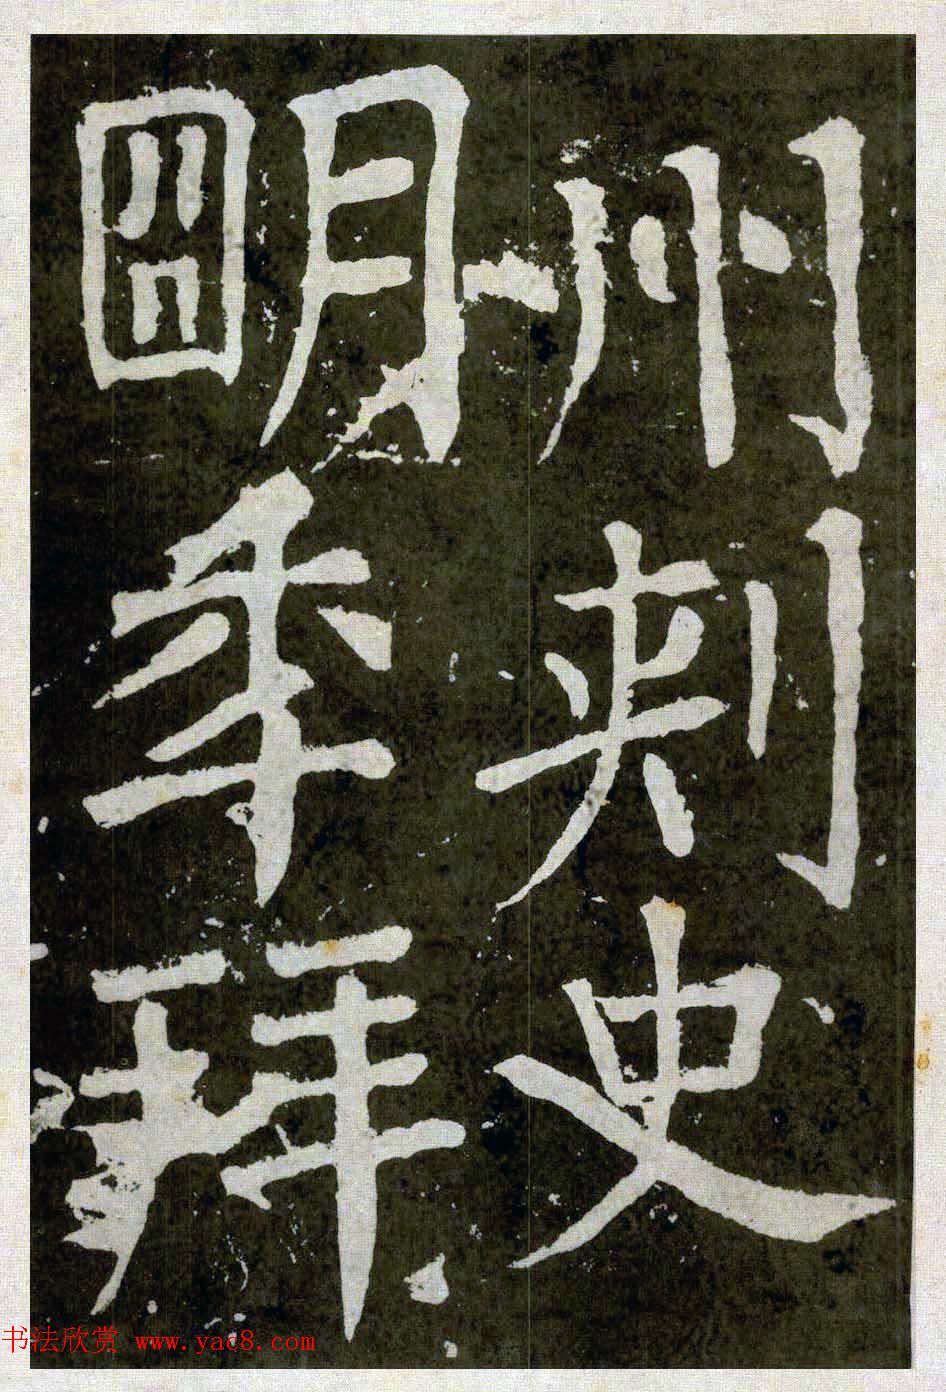 州刺史
明年拜
书法欣赏 www.yac8.com